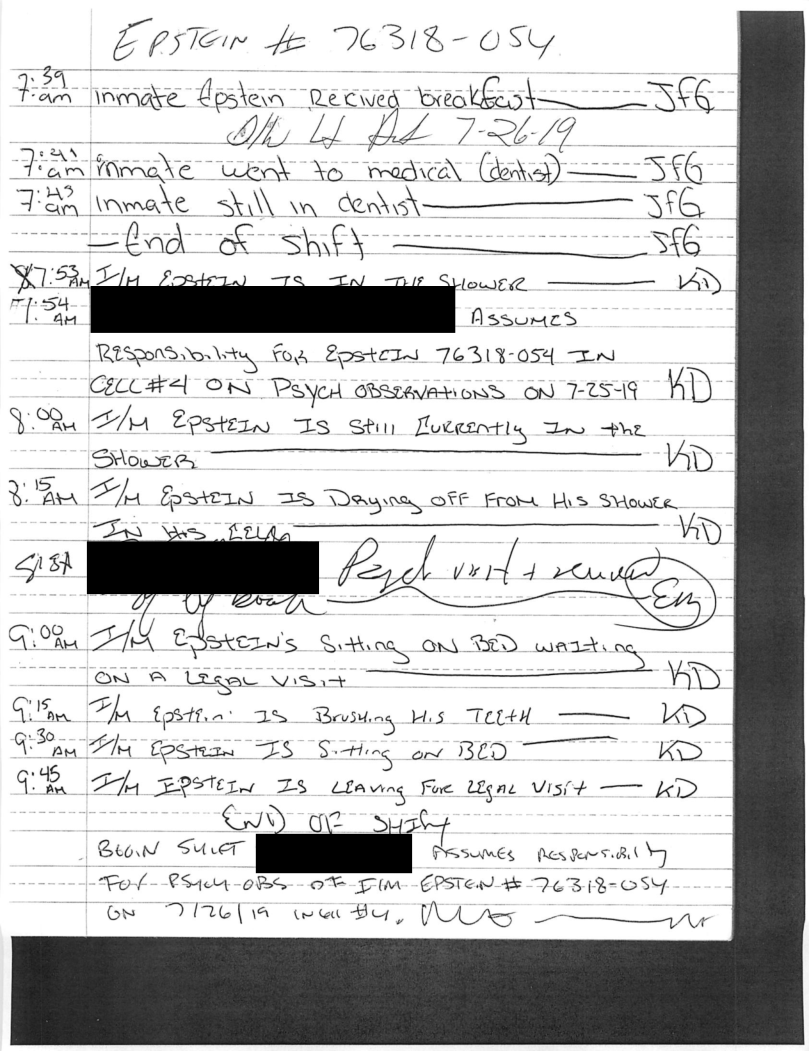 EPSTEIN # 76318-054
7:39 am inmate Epstein Recived breakfast JfG
7-26-19
7:41 am inmate went to medical (dentist) JfG
7:43 am inmate still in dentist JfG
End of shift JfG
7:53 AM I/M EPSTEIN IS IN THE SHOWER KD
7:54 AM ASSUMES
RESPONSIBILITY FOR EPSTEIN 76318-054 IN
CELL #4 ON PSYCH OBSERVATIONS ON 7-25-19 KD
8:00 AM I/M EPSTEIN IS Still CURRENTLY IN the
SHOWER KD
8:15 AM I/M EPSTEIN IS Drying OFF FROM HIS SHOWER
IN HIS CELL KD
Psych visit +
9:00 AM I/M EPSTEIN'S Sitting ON BED WAITING
ON A LEGAL VISIT KD
9:15 AM I/M EPSTEIN IS Brushing HIS TEETH KD
9:30 AM I/M EPSTEIN IS Sitting ON BED KD
9:45 AM I/M EPSTEIN IS LEAVING FOR LEGAL VISIT KD
END OF SHIFT
BEGIN SHIFT ASSUMES RESPONSIBILITY
FOR PSYCH OBS OF I/M EPSTEIN # 76318-054
ON 7/26/19 IN Cell #4.